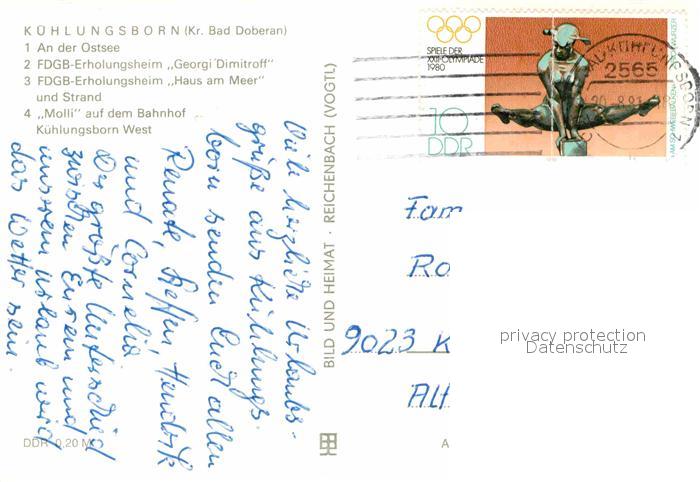 KÜHLUNGSBORN (Kr. Bad Doberan)
1 An der Ostsee
2 FDGB-Erholungsheim „Georgi Dimitroff"
3 FDGB-Erholungsheim „Haus am Meer"
und Strand
4 „Molli" auf dem Bahnhof
Kühlungsborn West
Viele herzliche Urlaubs-
grüße aus Kühlungs-
born senden Euch allen
Renate, Steffen, Hendrik
und Cornelia
Der größte Unterschied
zwischen Eurem und
unserem Urlaub wird
das Wetter sein.
DDR 0,20 M
BILD UND HEIMAT · REICHENBACH (VOGTL)
A
SPIELE DER
XXII. OLYMPIADE
1980
10
DDR
2565
KÜHLUNGSBORN
Fam
Ro
9023 K
Alt
privacy protection
Datenschutz